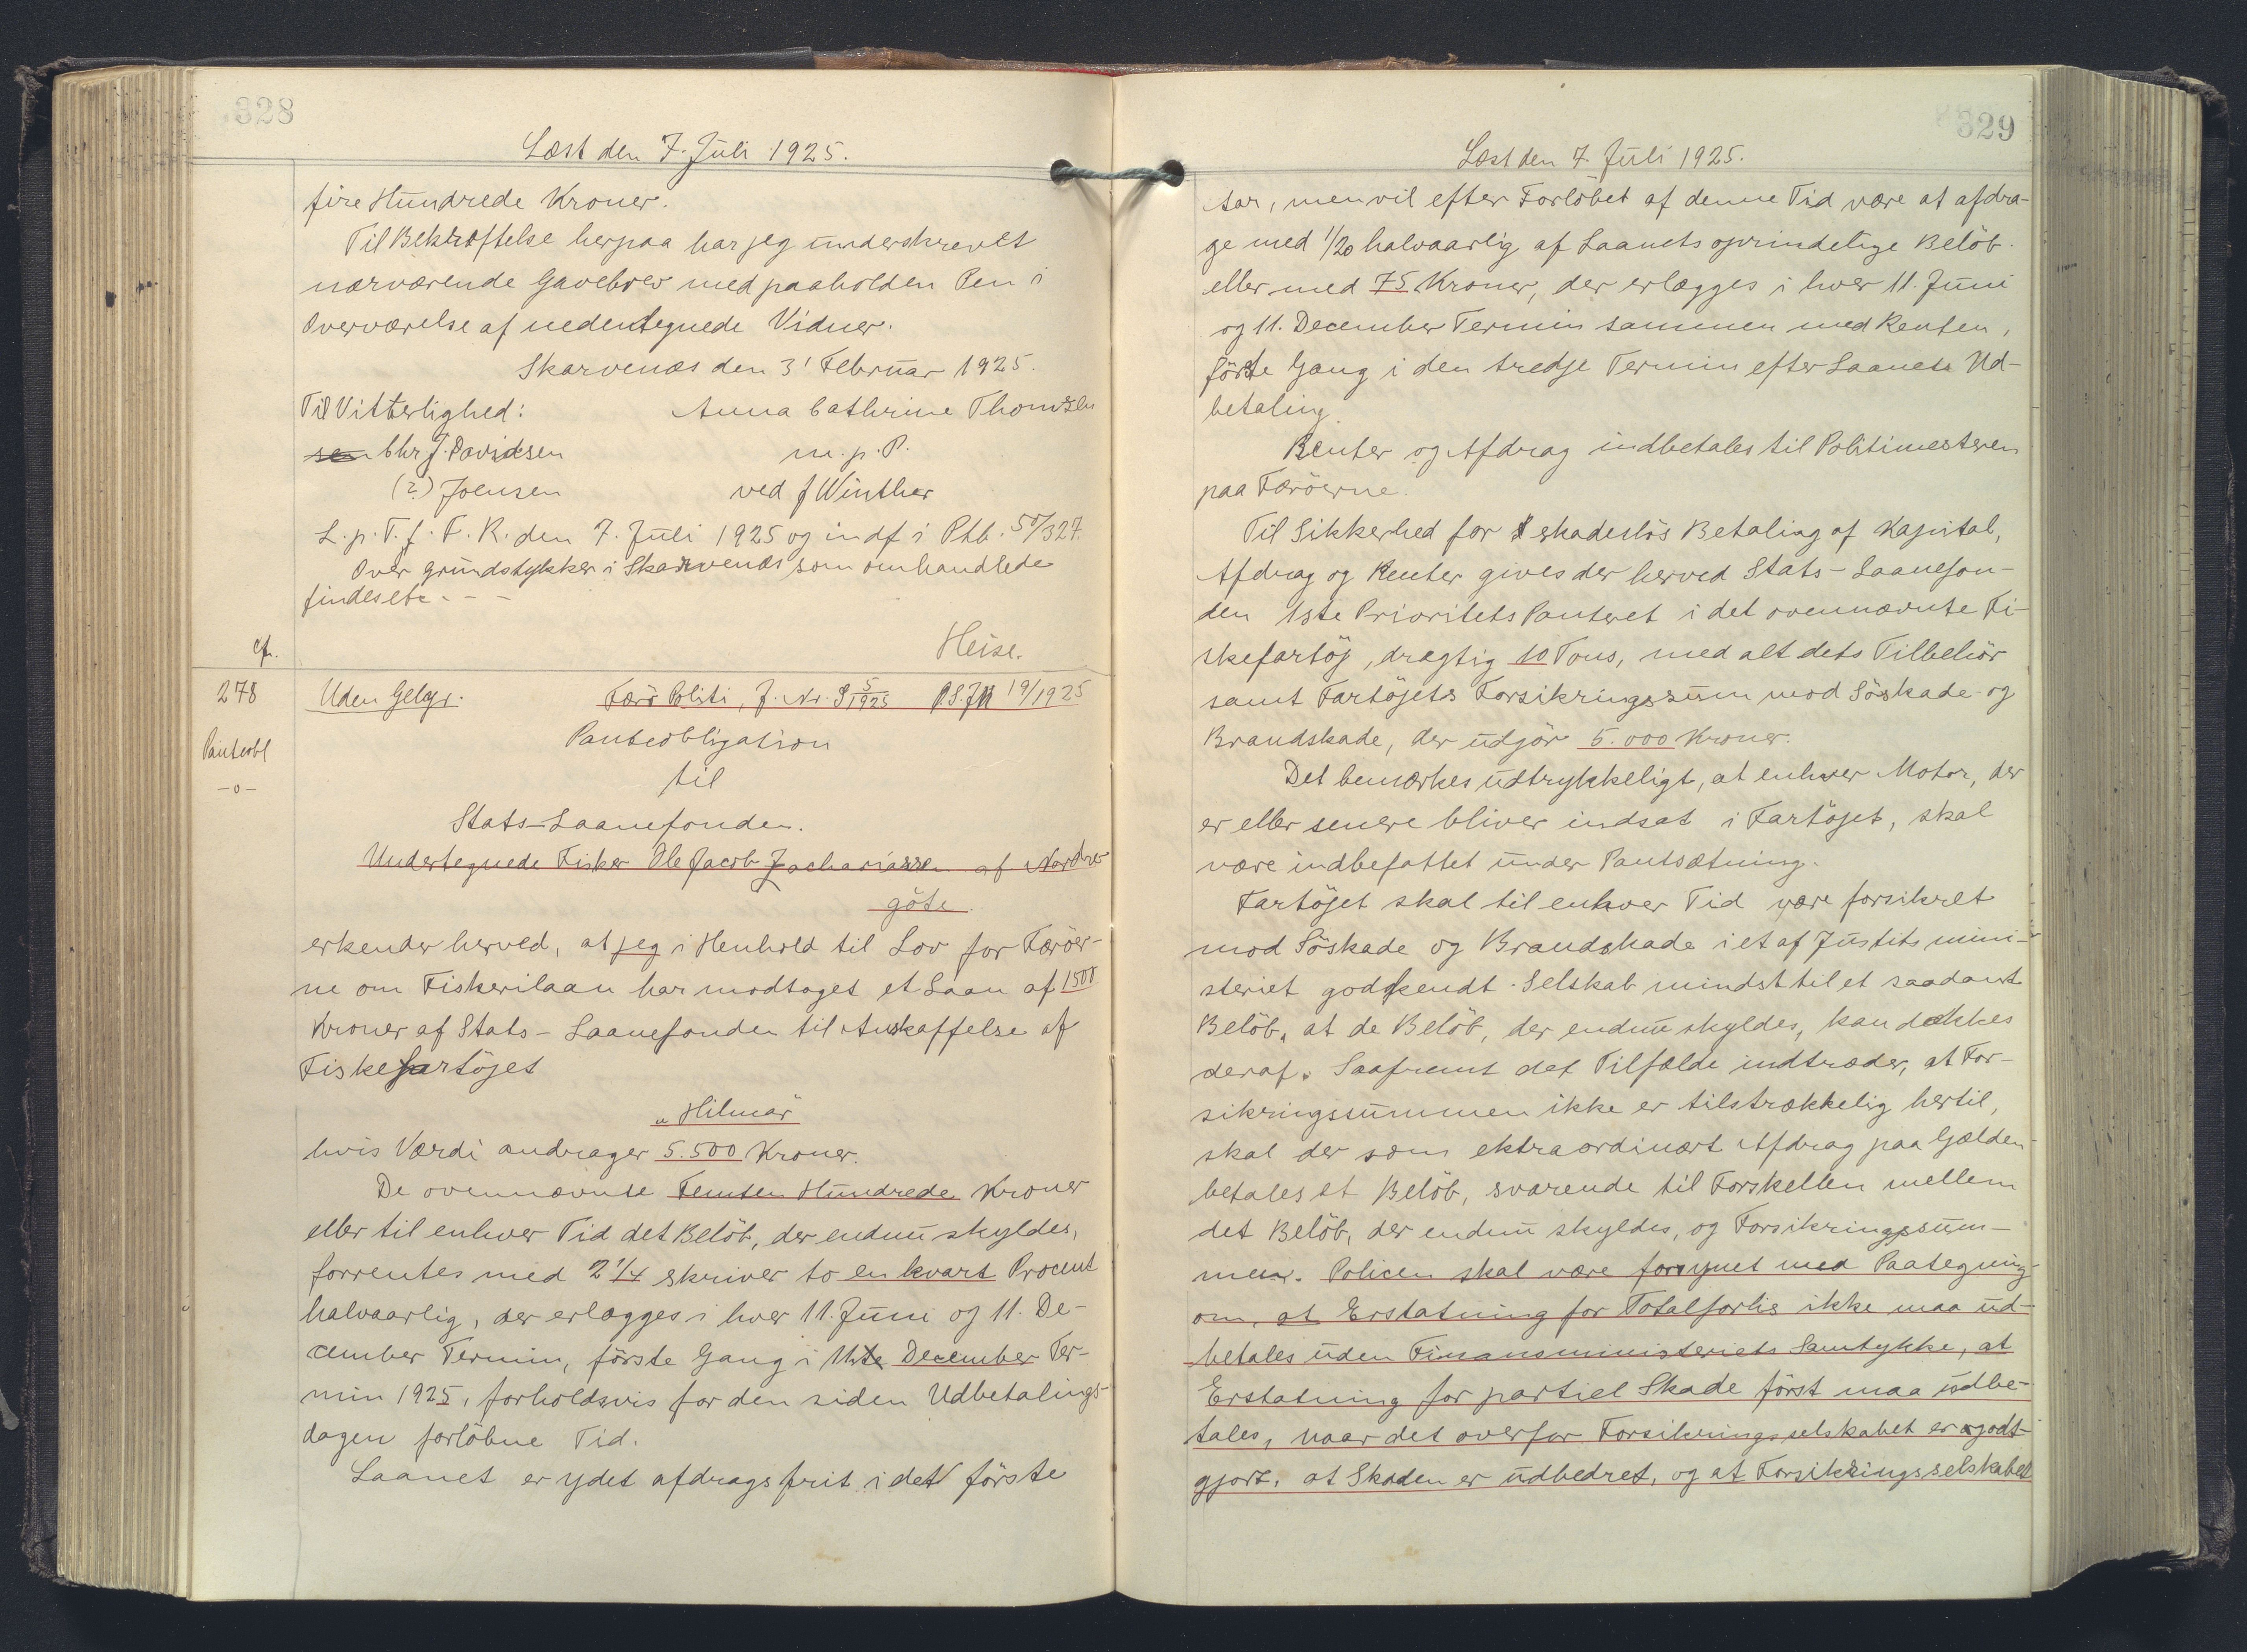 328
Læst den 7. Juli 1925.
fire Hundrede Kroner.
Til Bekræftelse herpaa har jeg underskrevet
nærværende Gavebrev med paaholden Pen i
Overværelse af nedentegnede Vidner.
Skarvenæs den 3' Februar 1925.
Til Vitterlighed: Anna Cathrine Thomsen
Chr J. Davidsen m. p. P.
(?) Joensen ved J Winther
L. p. T. f. F. R. den 7. Juli 1925 og indf i Ptb. 5°/327.
Over Grundstykker i Skarvenæs som omhandlede
findes etc - - -
cfr. Heise.
278 Uden Gebyr. Færø Politi, J. Nr. 9 5/1925 19/1925
Panteobl Panteobligation
-o- til
Stats-Laanefonden.
Undertegnede Fisker Ole Jacob Zachariassen af Nordre
göte.
erkender herved, at jeg i Henhold til Lov for Færöer-
ne om Fiskerilaan har modtaget et Laan af 1500
Kroner af Stats-Laanefonden til Anskaffelse af
Fiskefartöjet
"Hilmar"
hvis Værdi andrager 5.500 Kroner.
De ovennævnte Femten Hundrede Kroner
eller til enhver Tid det Belöb, der endnu skyldes,
forrentes med 2 1/4 skriver to en kvart Procent
halvaarlig, der erlægges i hver 11. Juni og 11. De-
cember Termin, förste Gang i 11te December Ter-
min 1925, forholdsvis for den siden Udbetalings-
dagen forlöbne Tid.
Laanet er ydet afdragsfrit i det förste
329
Læst den 7. Juli 1925.
Aar, men vil efter Forlöbet af denne Tid være at afdra-
ge med 1/20 halvaarlig af Laanets oprindelige Belöb
eller med 75 Kroner, der erlægges i hver 11. Juni
og 11. December Termin sammen med Renten,
förste Gang i den tredje Termin efter Laanets Ud-
betaling.
Renter og Afdrag indbetales til Politimesteren
paa Færöerne.
Til Sikkerhed for skadeslös Betaling af Kapital,
Afdrag og Renter gives der herved Stats-Laanefon-
den 1ste Prioritets Panteret i det ovennævnte Fi-
skefartöj, drægtig 10 Tons, med alt dets Tilbehör
samt Fartöjets Forsikringssum mod Söskade og
Brandskade, der udgör 5.000 Kroner.
Det bemærkes udtrykkeligt, at enhver Motor, der
er eller senere bliver indsat i Fartöjet, skal
være indbefattet under Pantsætning.
Fartöjet skal til enhver Tid være forsikret
mod Söskade og Brandskade i et af Justitsmini-
steriet godkendt Selskab mindst til et saadant
Belöb, at de Belöb, der endnu skyldes, kan dækkes
deraf. Saafremt det Tilfælde indtræder, at For-
sikringssummen ikke er tilstrækkelig hertil,
skal der som ekstraordinært Afdrag paa Gælden
betales et Belöb, svarende til Forskellen mellem
det Belöb, der endnu skyldes, og Forsikringssum-
men. Policen skal være forsynet med Paategning
om, at Erstatning for Totalforlis ikke maa ud-
betales uden Finansministeriets Samtykke, at
Erstatning for partiel Skade först maa udbe-
tales, naar det overfor Forsikringsselskabet er godt-
gjort, at Skaden er udbedret, og at Forsikringsselskabet